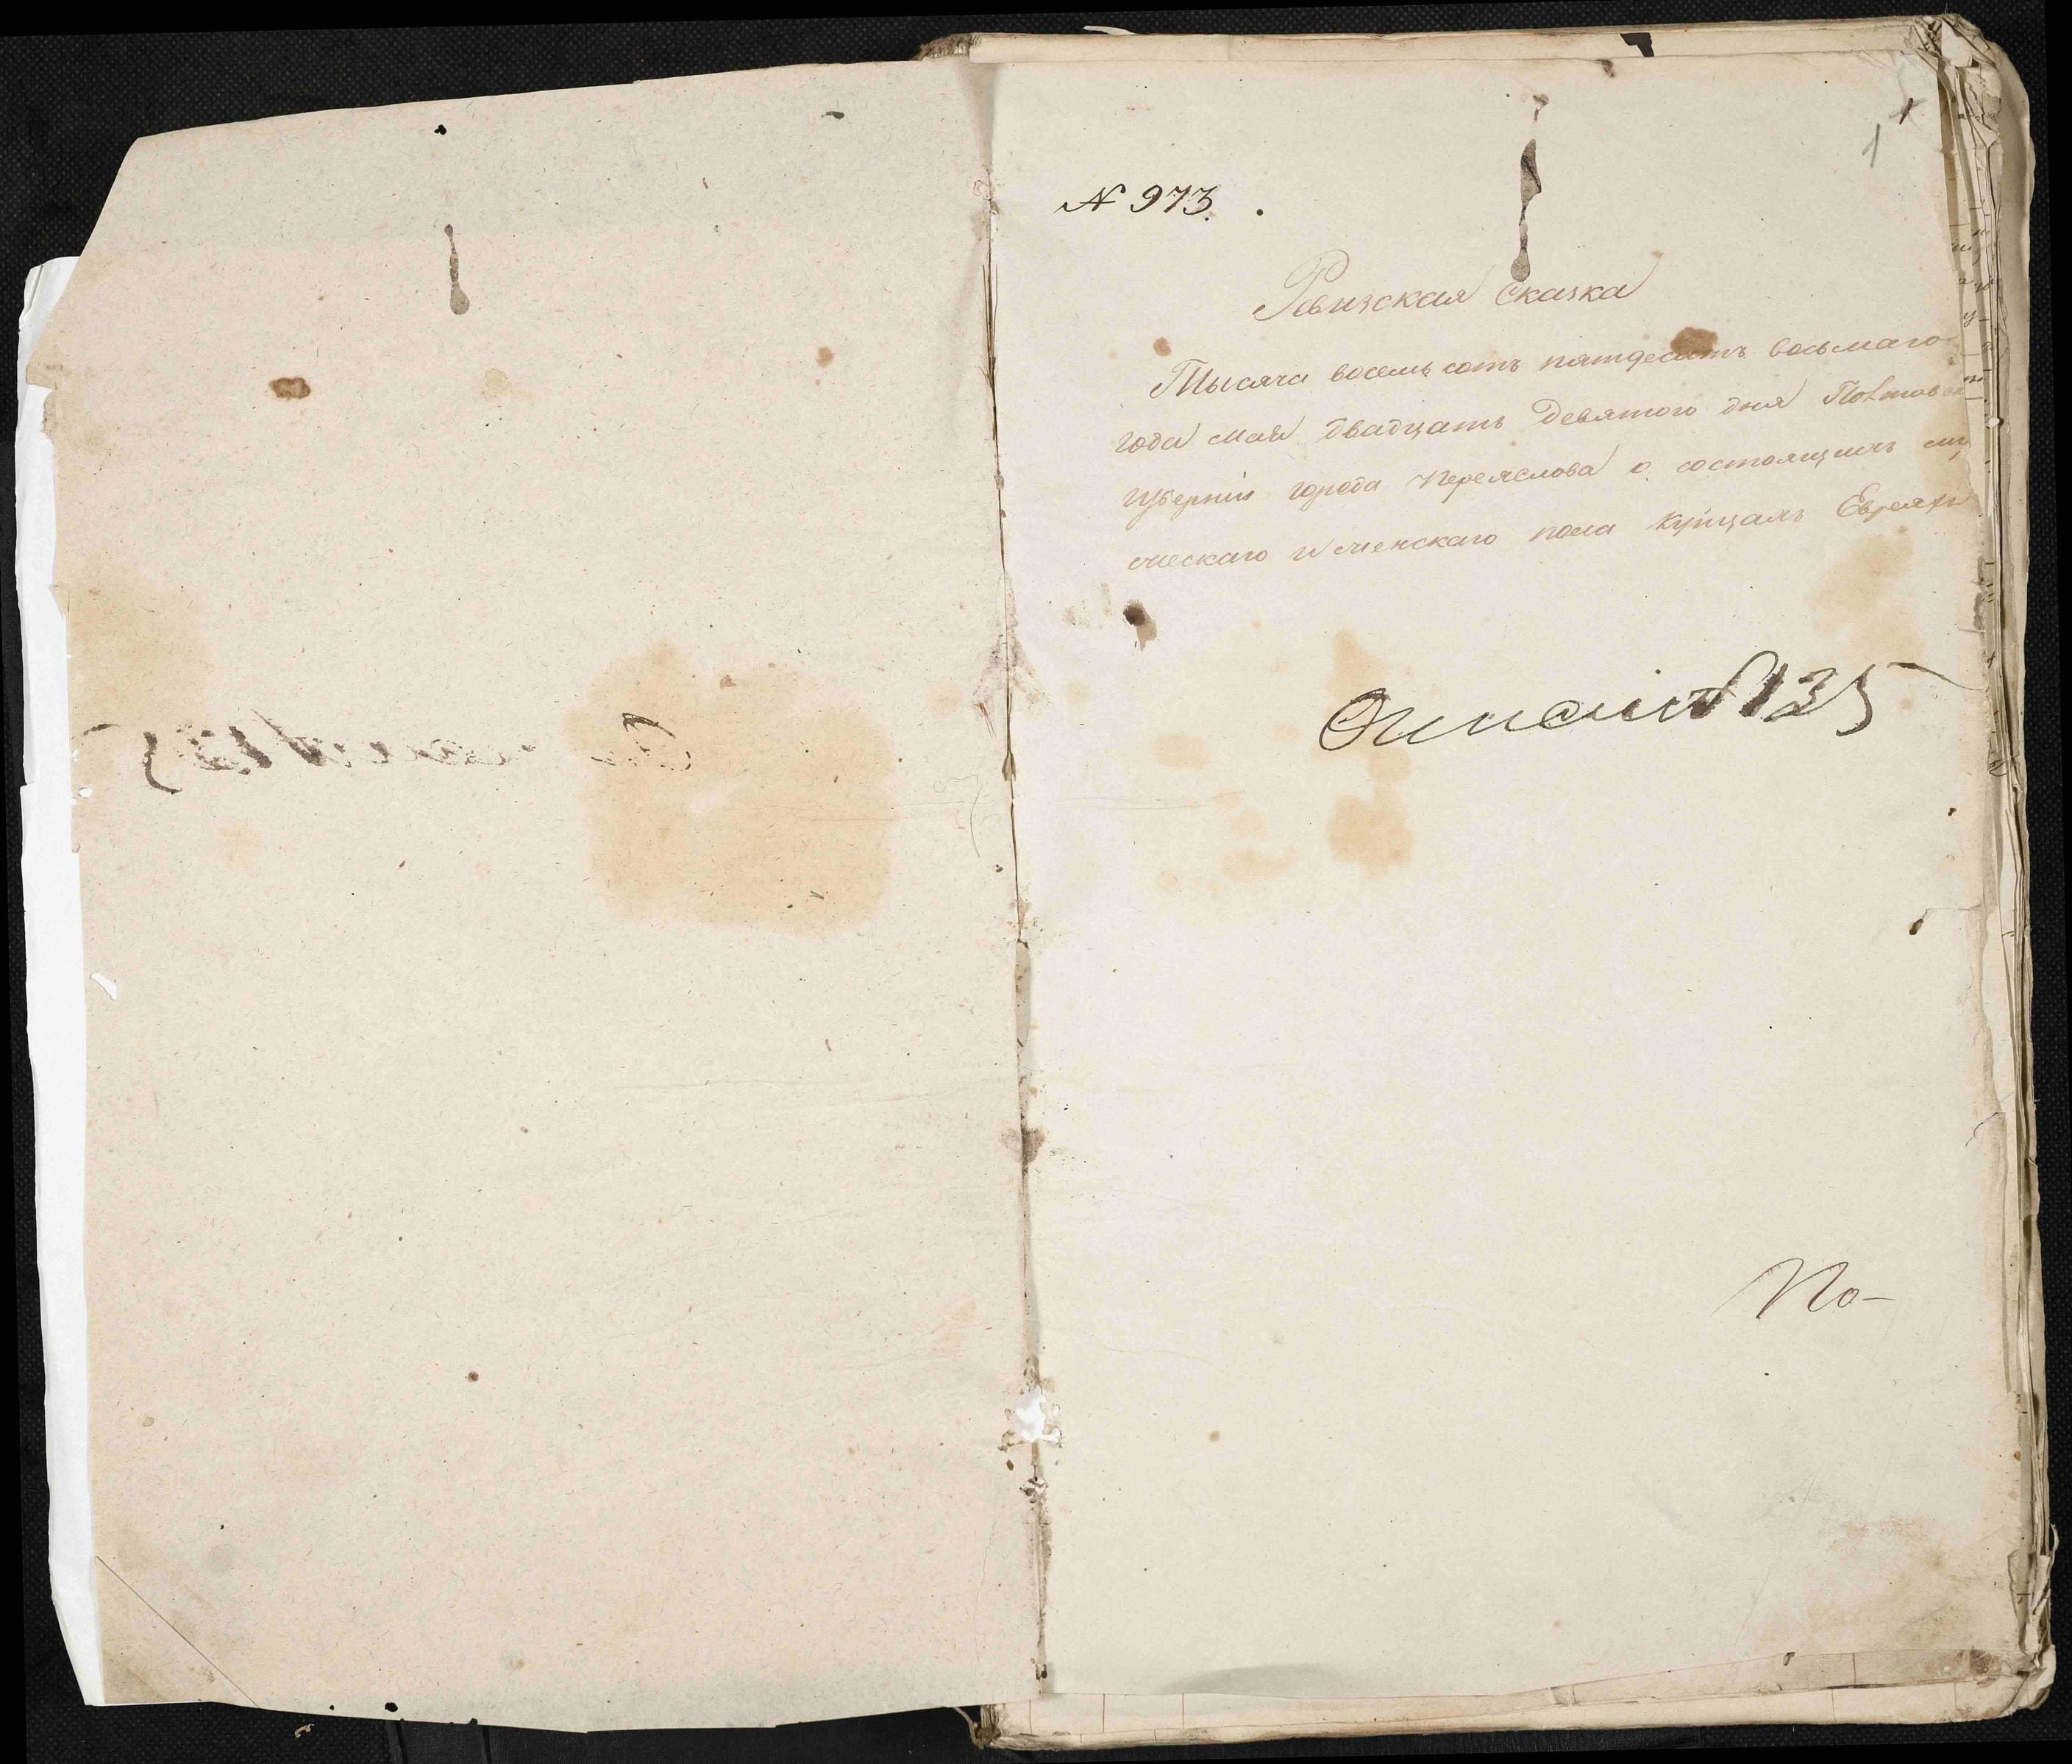 1
1
№ 973.
Ревизская сказка
Тысяча восемь сотъ пятдесятъ восьмаго
года мая двадцать девятого дня Полтавск
губерніи города Переяслова о состоящихъ му
ческаго и женскаго пола купцахъ Евреяхъ
135
По-